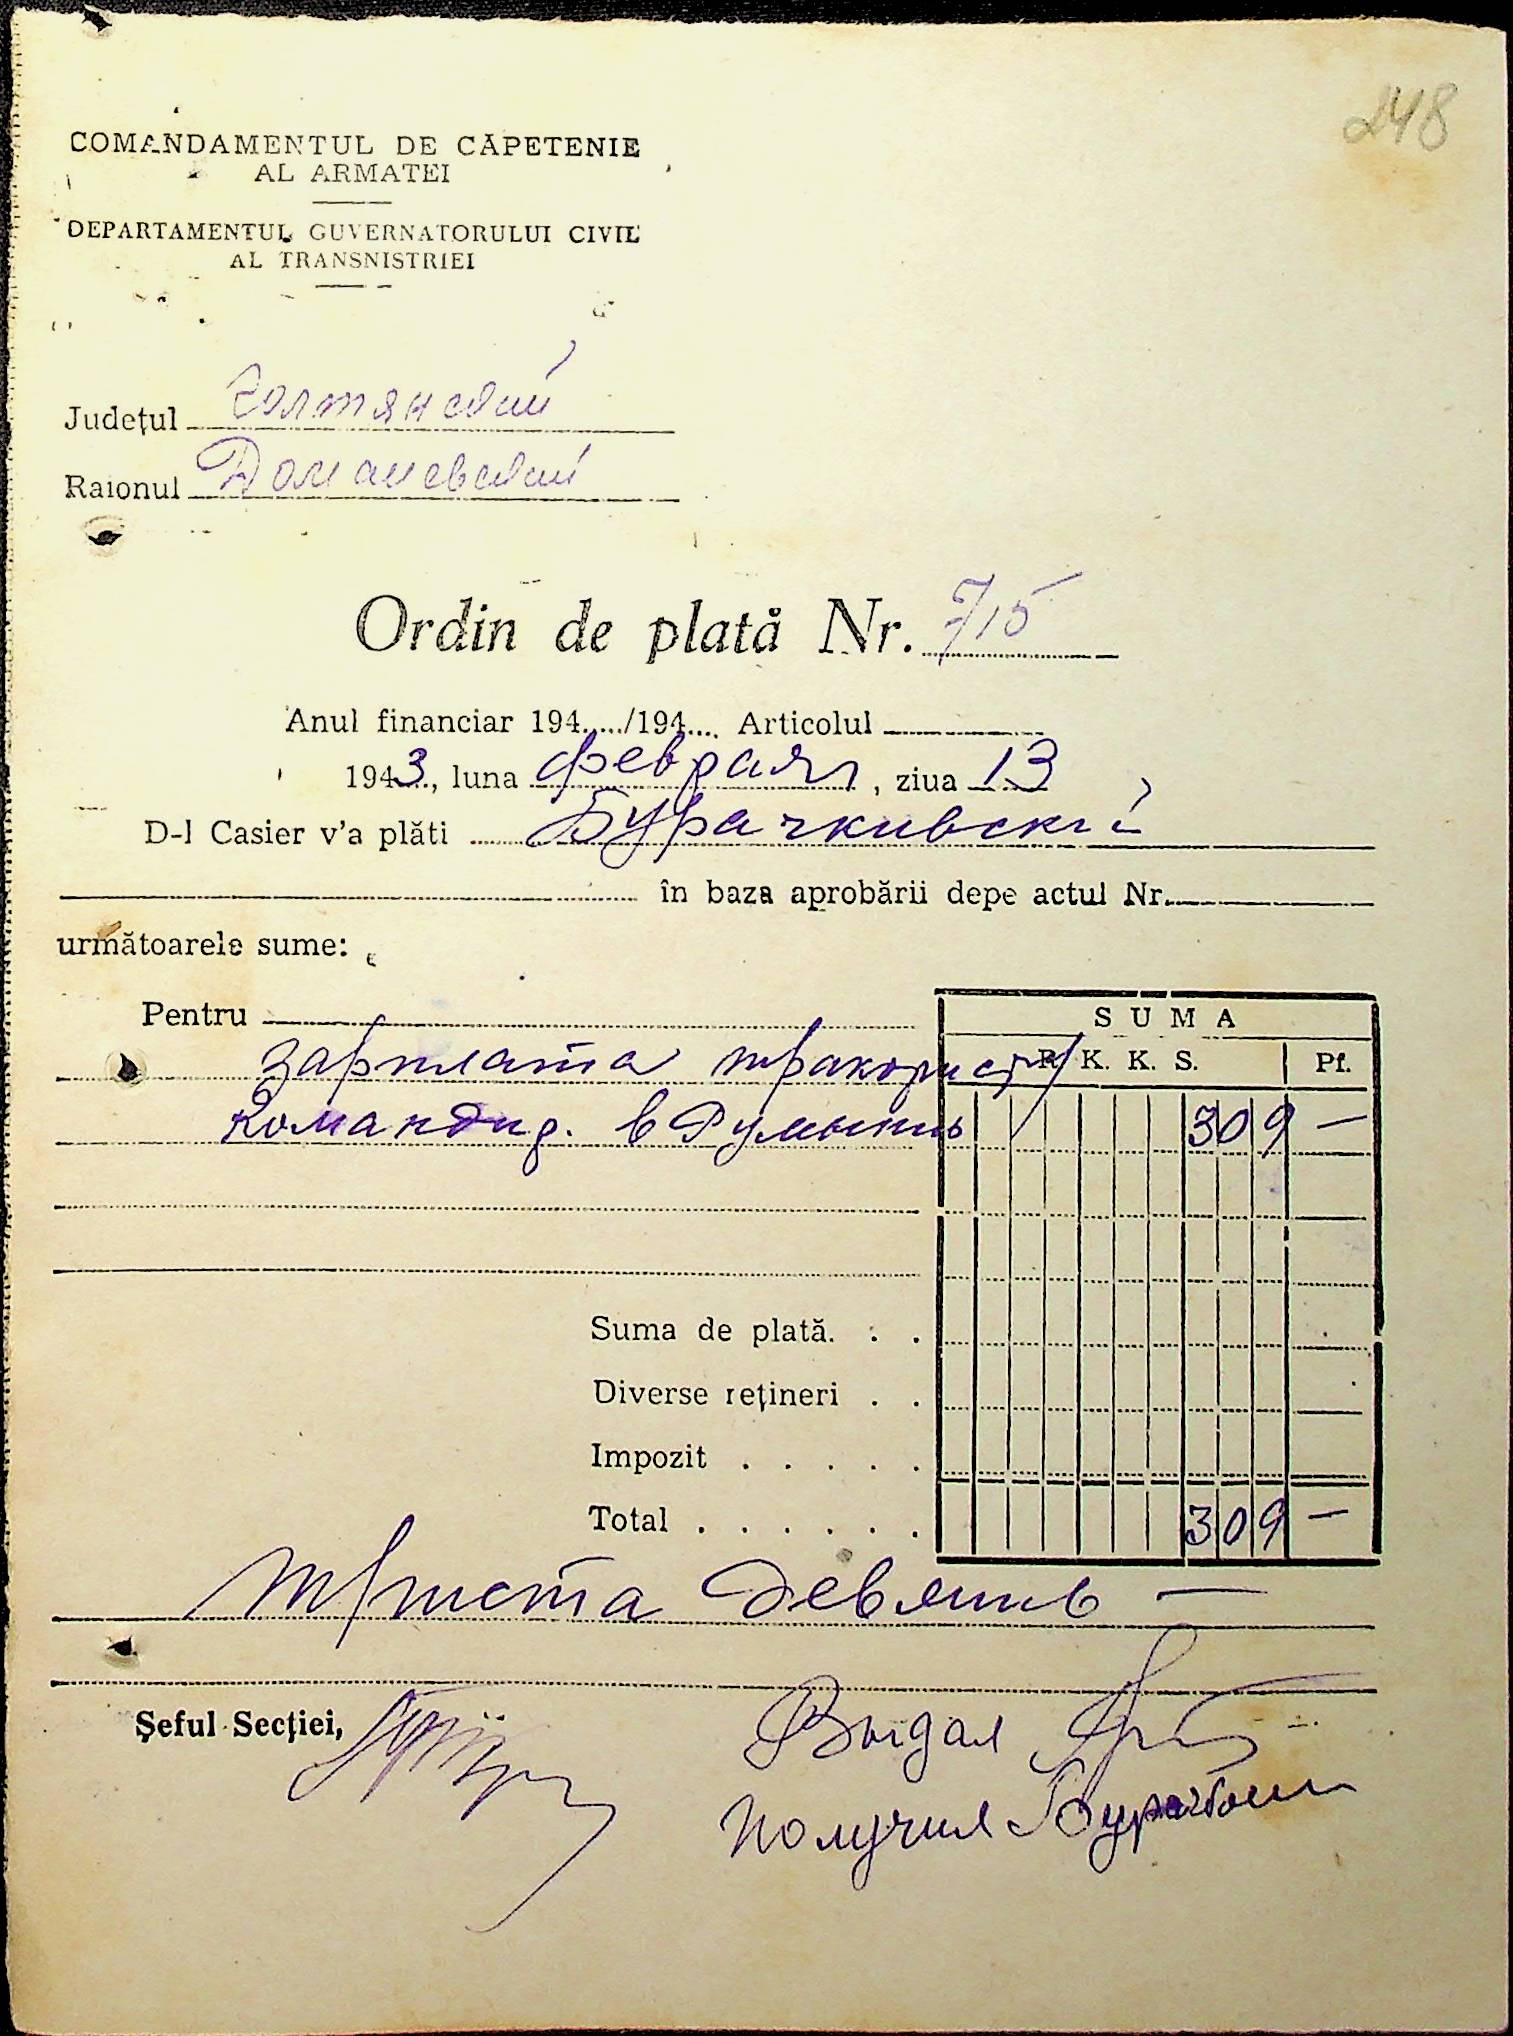 248
COMANDAMENTUL DE CĂPETENIE
AL ARMATEI
DEPARTAMENTUL GUVERNATORULUI CIVIL
AL TRANSNISTRIEI
Județul Голтянский
Raionul Доманевский
Ordin de plată Nr. 715
Anul financiar 194...../194.... Articolul
1943, luna февраля, ziua 13
D-l Casier v'a plăti Бурачкивский
în baza aprobării depe actul Nr.
următoarele sume:
Pentru
SUMA
зарплата тракорист
R. K. K. S. Pf.
командир. в Румынию 309 —
Suma de plată. . .
Diverse rețineri . .
Impozit . . . . .
Total . . . . . . 309 —
триста девять —
Șeful Secției,
Выдал
Получил